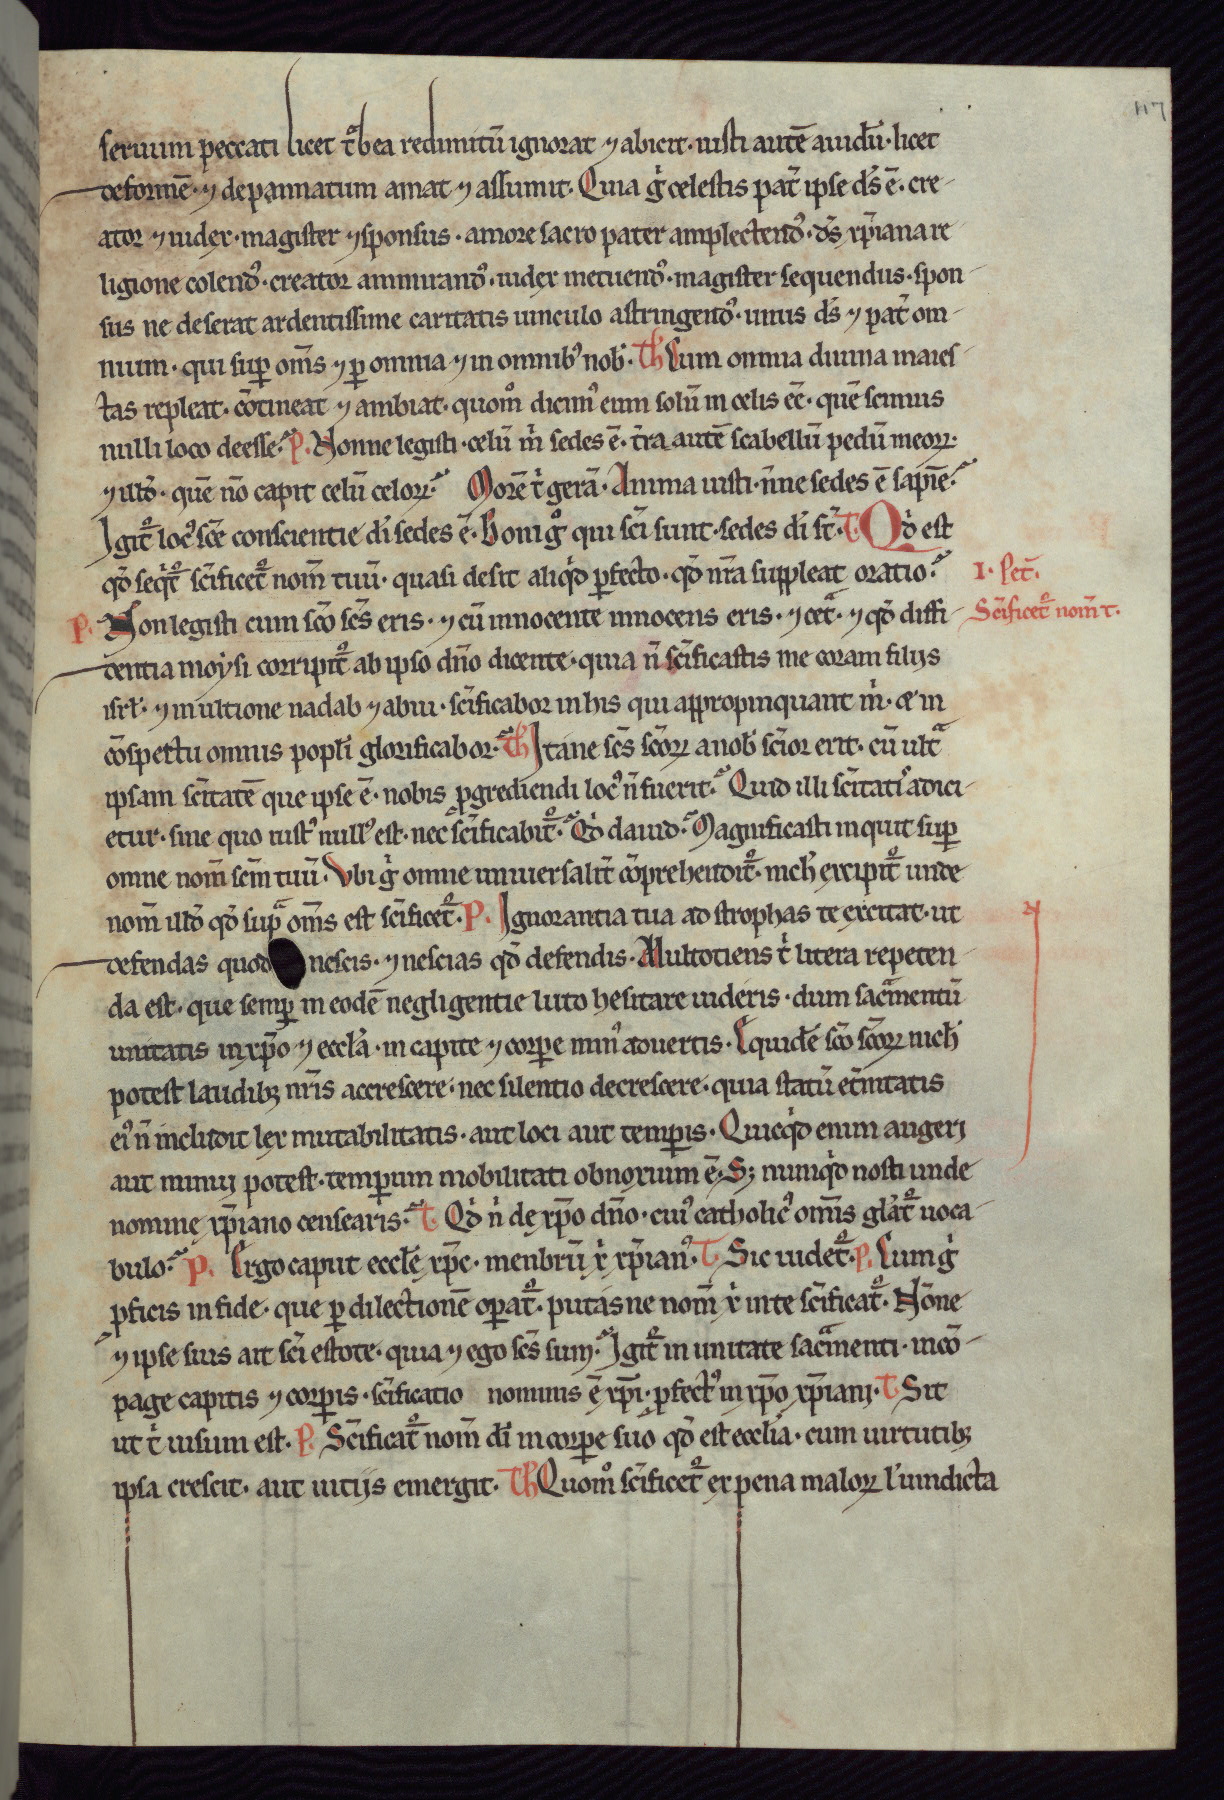 117
seruum peccati licet t͛bea redimitū ignorat ⁊ abicit· iusti autē auidū· licet
deformē· ⁊ depannatum amat ⁊ assumit· Quia g̊ celestis pat̄ ipse ds̄ ē· cre-
ator ⁊ iudex· magister ⁊ sponsus· amore sacro pater amplectendꝰ· ds̄ xp̄iana re
ligione colendꝰ· creator ammirandꝰ· iudex metuendꝰ· magister sequendus· spon-
sus ne deserat ardentissime caritatis uinculo astringendꝰ· unus ds̄ ⁊ pat̄ om-
nium· qui suꝑ om̄s ⁊ ꝑ omnia ⁊ in omnibꝰ nob̄· Th Cum omnia diuina maies-
tas repleat· cōtineat ⁊ ambiat· quom̊ dicimꝰ eum solū in celis eē· quē scimus
nulli loco deesse· P. Nonne legisti· celū m̄ sedes ē· t̄ra autē scabellū pedū meoꝝ·
⁊ illđ· quē nō capit celū celoꝝ· Morē t̄ gerā· Anima iusti· n̄ne sedes ē sapiē·
Igit᷑ locꝰ sc̄e conscientie dī sedes ē· Boni g̊ qui sc̄i sunt· sedes dī st̄· T. Qđ est
qđ seq̄t᷑ sc̄ificet᷑ nom̄ tuū· quasi desit aliq̄d ꝑfecto· qđ nr̄a suppleat oratio·
I· Pet̄.
P. Non legisti cum sc̄o sc̄s eris· ⁊ cū innocente innocens eris· ⁊ cet̄· ⁊ qđ diffi-
Sc̄ificet᷑ nom̄ t.
dentia moysi corripit᷑ ab ipso dn̄o dicente· quia n̄ sc̄ificastis me coram filijs
isrl̄· ⁊ in ultione nadab ⁊ abiu· sc̄ificabor in his qui appropinquant m̄· & in
cōspectu omnis popl̄i glorificabor· Th Itane sc̄s sc̄oꝝ a nob̄ sc̄ior erit· cū ult̄
ipsam sc̄itatē que ipse ē· nobis ꝓgrediendi locꝰ n̄ fuerit· Quid illi sc̄itatis adici-
etur· sine quo iustꝰ nullꝰ est· nec sc̄ificabit᷑· Qđ dauid· Magnificasti inquit suꝑ
omne nom̄ sc̄m tuū· Vbi g̊ omne uniuersalit̄ cōprehendit᷑· nich̄ excipit᷑ unde
nom̄ illđ qđ supͣ om̄s est sc̄ificet᷑· P. Ignorantia tua ad strophas te excitat· ut
defendas quod nescis· ⁊ nescias qđ defendis· Multotiens t̄ litera repeten
da est· que semꝑ in eodē negligentie luto hesitare uideris· dum sacͣmentū
unitatis in xp̄o ⁊ eccl̄a· in capite ⁊ corꝑe minꝰ aduertis· Equidē sc̄o sc̄oꝝ nich̄
potest laudibꝫ nr̄is accrescere· nec silentio decrescere· quia statū et̄nitatis
eiꝰ n̄ includit lex mutabilitatis· aut loci aut temꝑis· Quicq̄d enim augeri
aut minui potest· temꝑum mobilitati obnoxium ē· Sꝫ nunq̄d nosti unde
nomine xp̄iano censearis· T. Qđ n̄ de xp̄o dn̄o· cuiꝰ catholicꝰ om̄is gl̄at᷑ uoca-
bulo· P. Ergo caput eccl̄e xp̄c· menbrū x̄ xp̄ianꝰ· T. Sic uidet᷑· P. Cum g̊
ꝓficis in fide· que ꝑ dilectionē oꝑat᷑· putasne nom̄ x̄ in te sc̄ificat᷑· Nōne
⁊ ipse suis ait sc̄i estote· quia ⁊ ego sc̄s sum· Igit᷑ in unitate sacͣmenti· incō-
page capitis ⁊ corꝑis· sc̄ificatio nominis ē xp̄i· ꝑfectꝰ in xp̄o xp̄iani· T. Sit
ut t̄ uisum est· P. Sc̄ificat᷑ nom̄ dī in corꝑe suo qđ est eccl̄ia· cum uirtutibꝫ
ipsa crescit· aut uitijs emergit· Th Quom̊ sc̄ificet᷑ ex pena maloꝝ l̄ uindicta